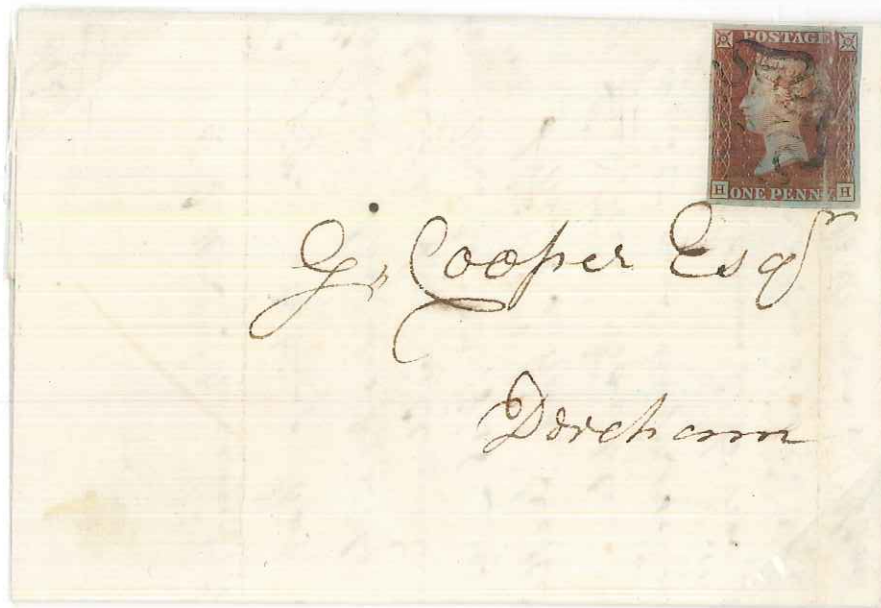 POSTAGE
H ONE PENNY H
G. Cooper Esqr
Dereham